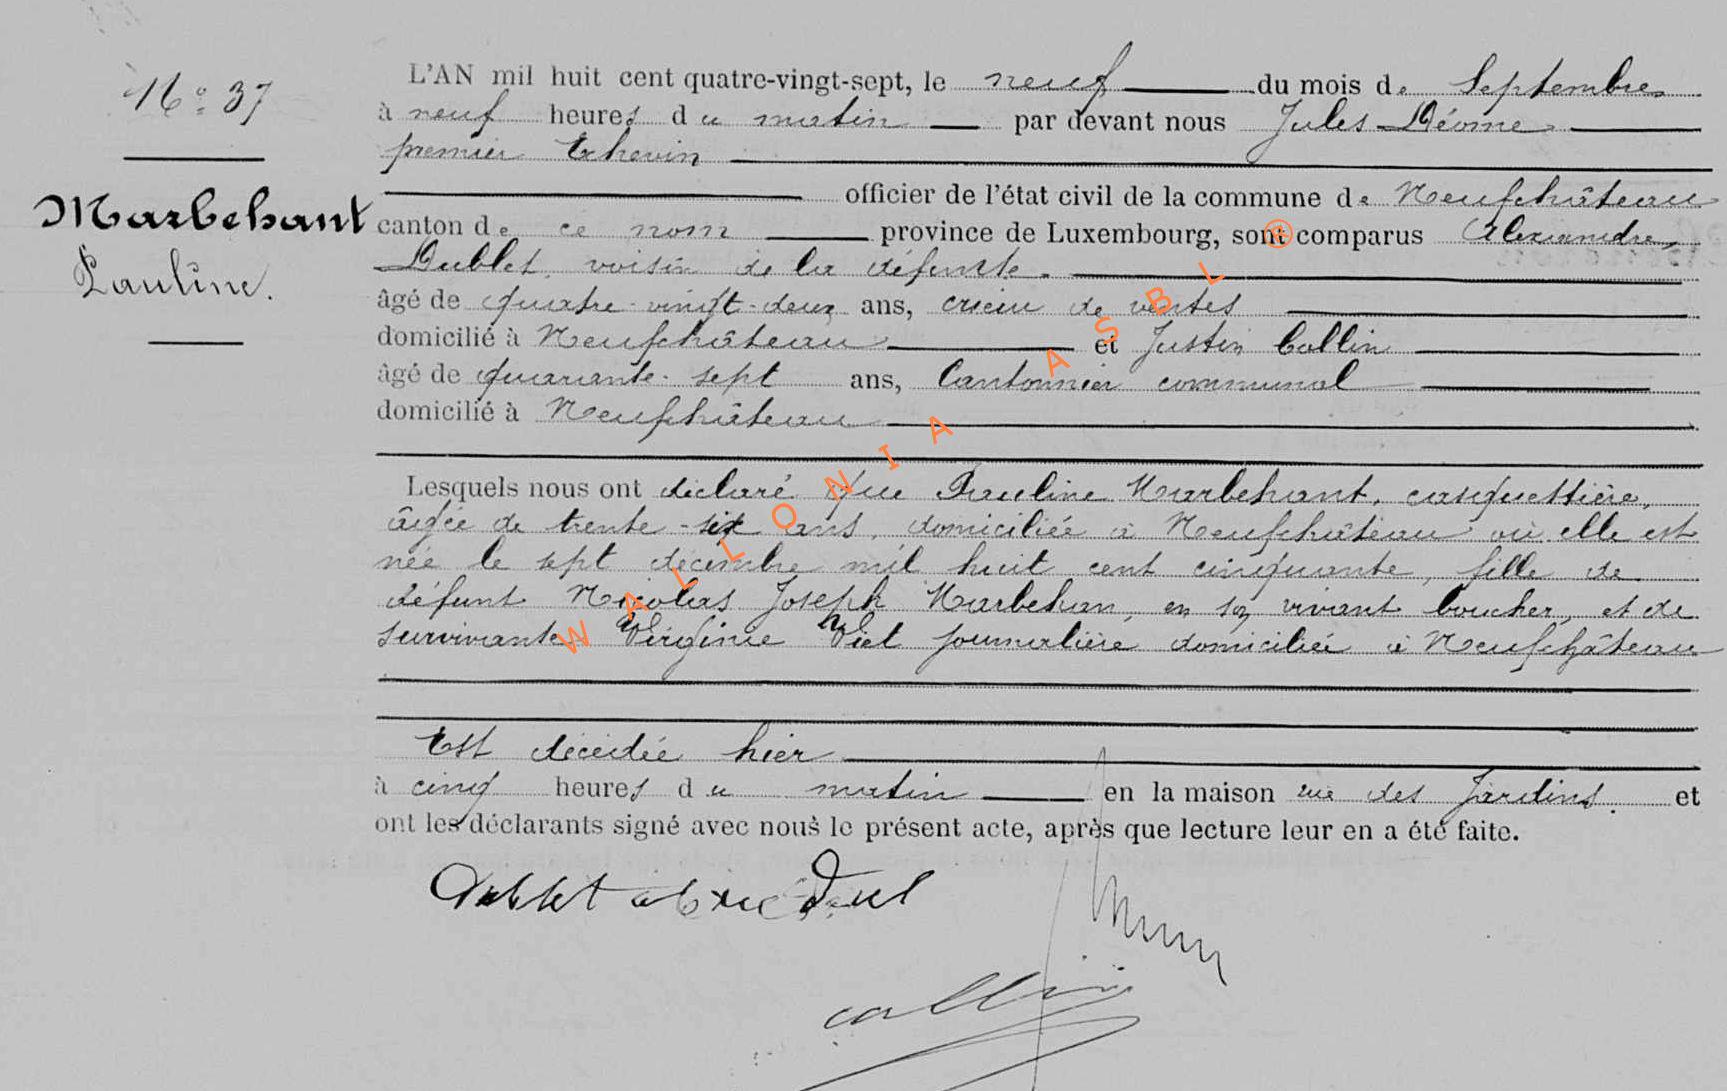 N° 37
Marbehant
Pauline.
L'AN mil huit cent quatre-vingt-sept, le neuf du mois de Septembre
à neuf heures du matin par devant nous Jules Déome
premier Echevin
officier de l'état civil de la commune de Neufchâteau
canton de ce nom province de Luxembourg, sont comparus Alexandre
Dublet, voisin de la défunte.
âgé de quatre-vingt-deux ans, crieur de ventes
domicilié à Neufchâteau et Justin Collin
âgé de quarante-sept ans, Cantonnier communal
domicilié à Neufchâteau
Lesquels nous ont déclaré que Pauline Marbehant, casquettière,
âgée de trente-six ans, domiciliée à Neufchâteau où elle est
née le sept décembre mil huit cent cinquante, fille de
défunt Nicolas Joseph Marbehan, en son vivant boucher, et de
survivante Virginie Viel journalière domiciliée à Neufchâteau
Est décédée hier
à cinq heures du matin en la maison rue des Jardins. et
ont les déclarants signé avec nous le présent acte, après que lecture leur en a été faite.
Dublet
collin
WALLONIA ASBL ®